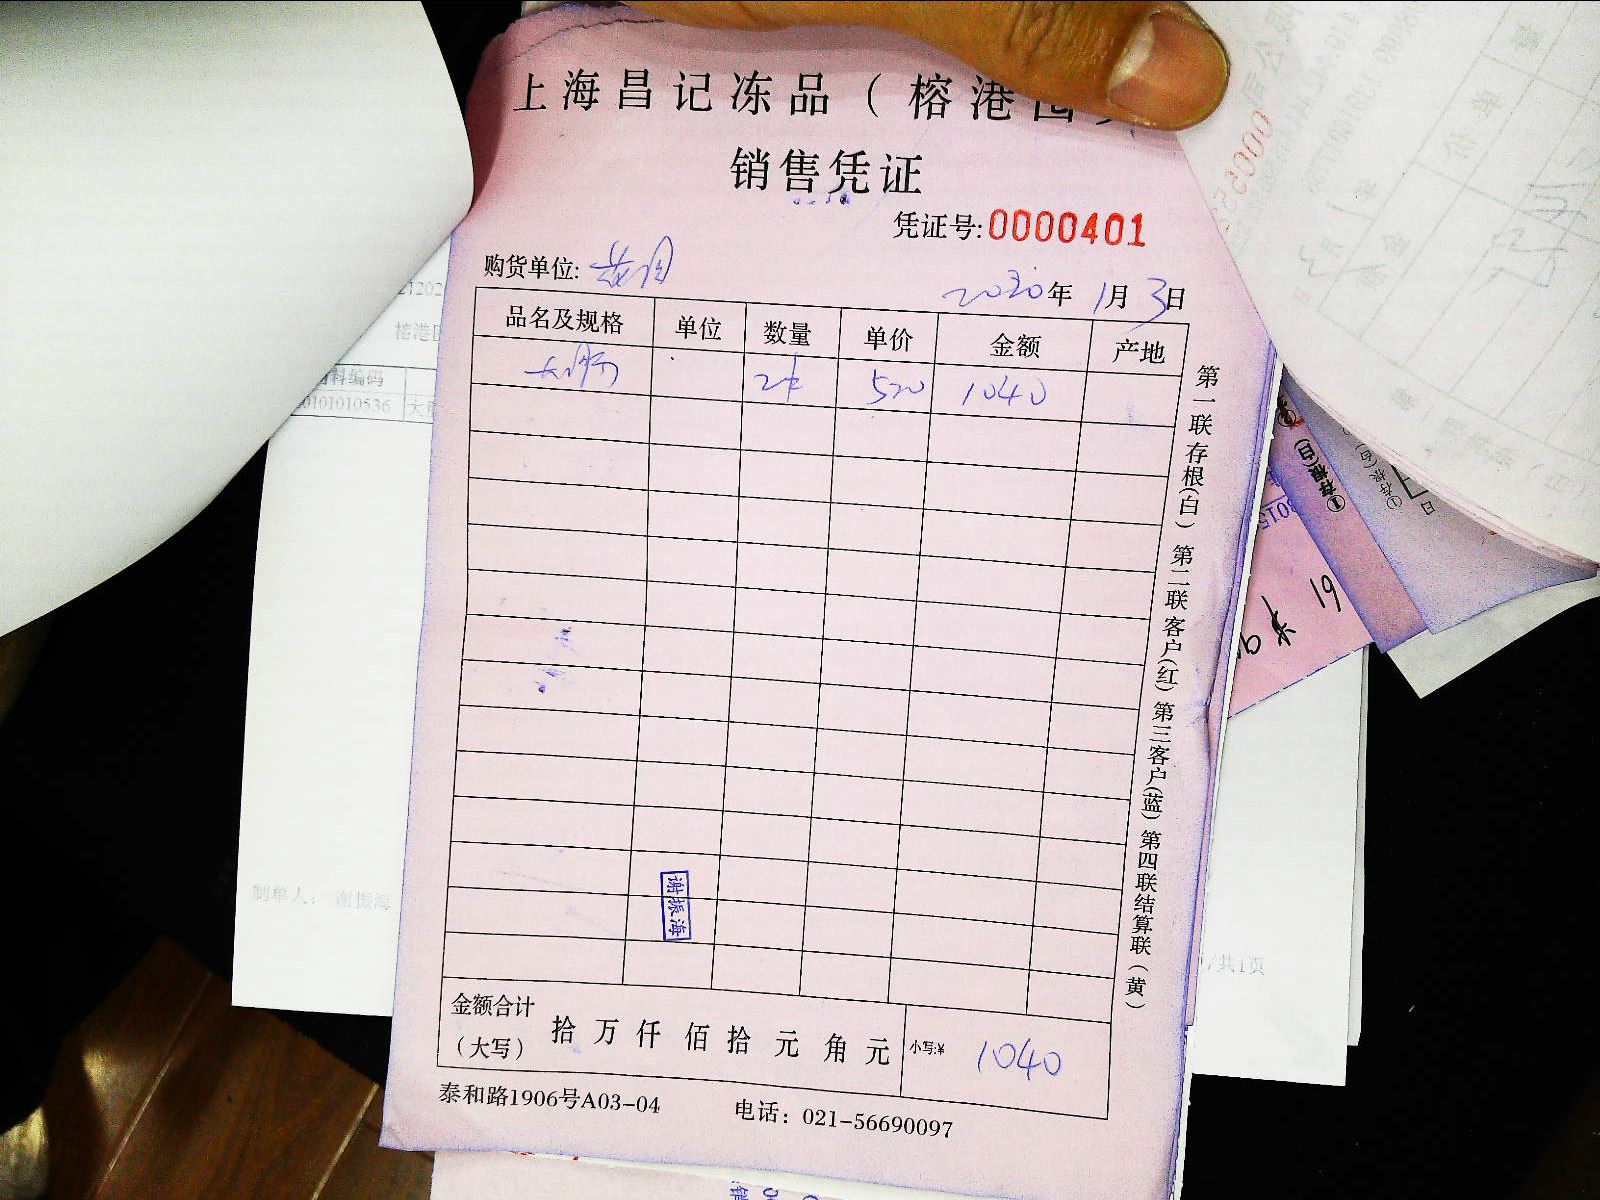 上海昌记冻品（榕港
销售凭证
凭证号:0000401
购货单位:
2020年 1月 3日
品名及规格 单位 数量 单价 金额 产地
大肠 2件 520 1040
第一联存根(白) 第二联客户(红) 第三客户(蓝) 第四联结算联(黄)
谢振海
金额合计
(大写) 拾 万 仟 佰 拾 元 角 元 小写:¥ 1040
泰和路1906号A03-04 电话：021-56690097
料编码
0101010536
制单人： 谢振海
/共1页
①存根(白)
①存根(白)
19